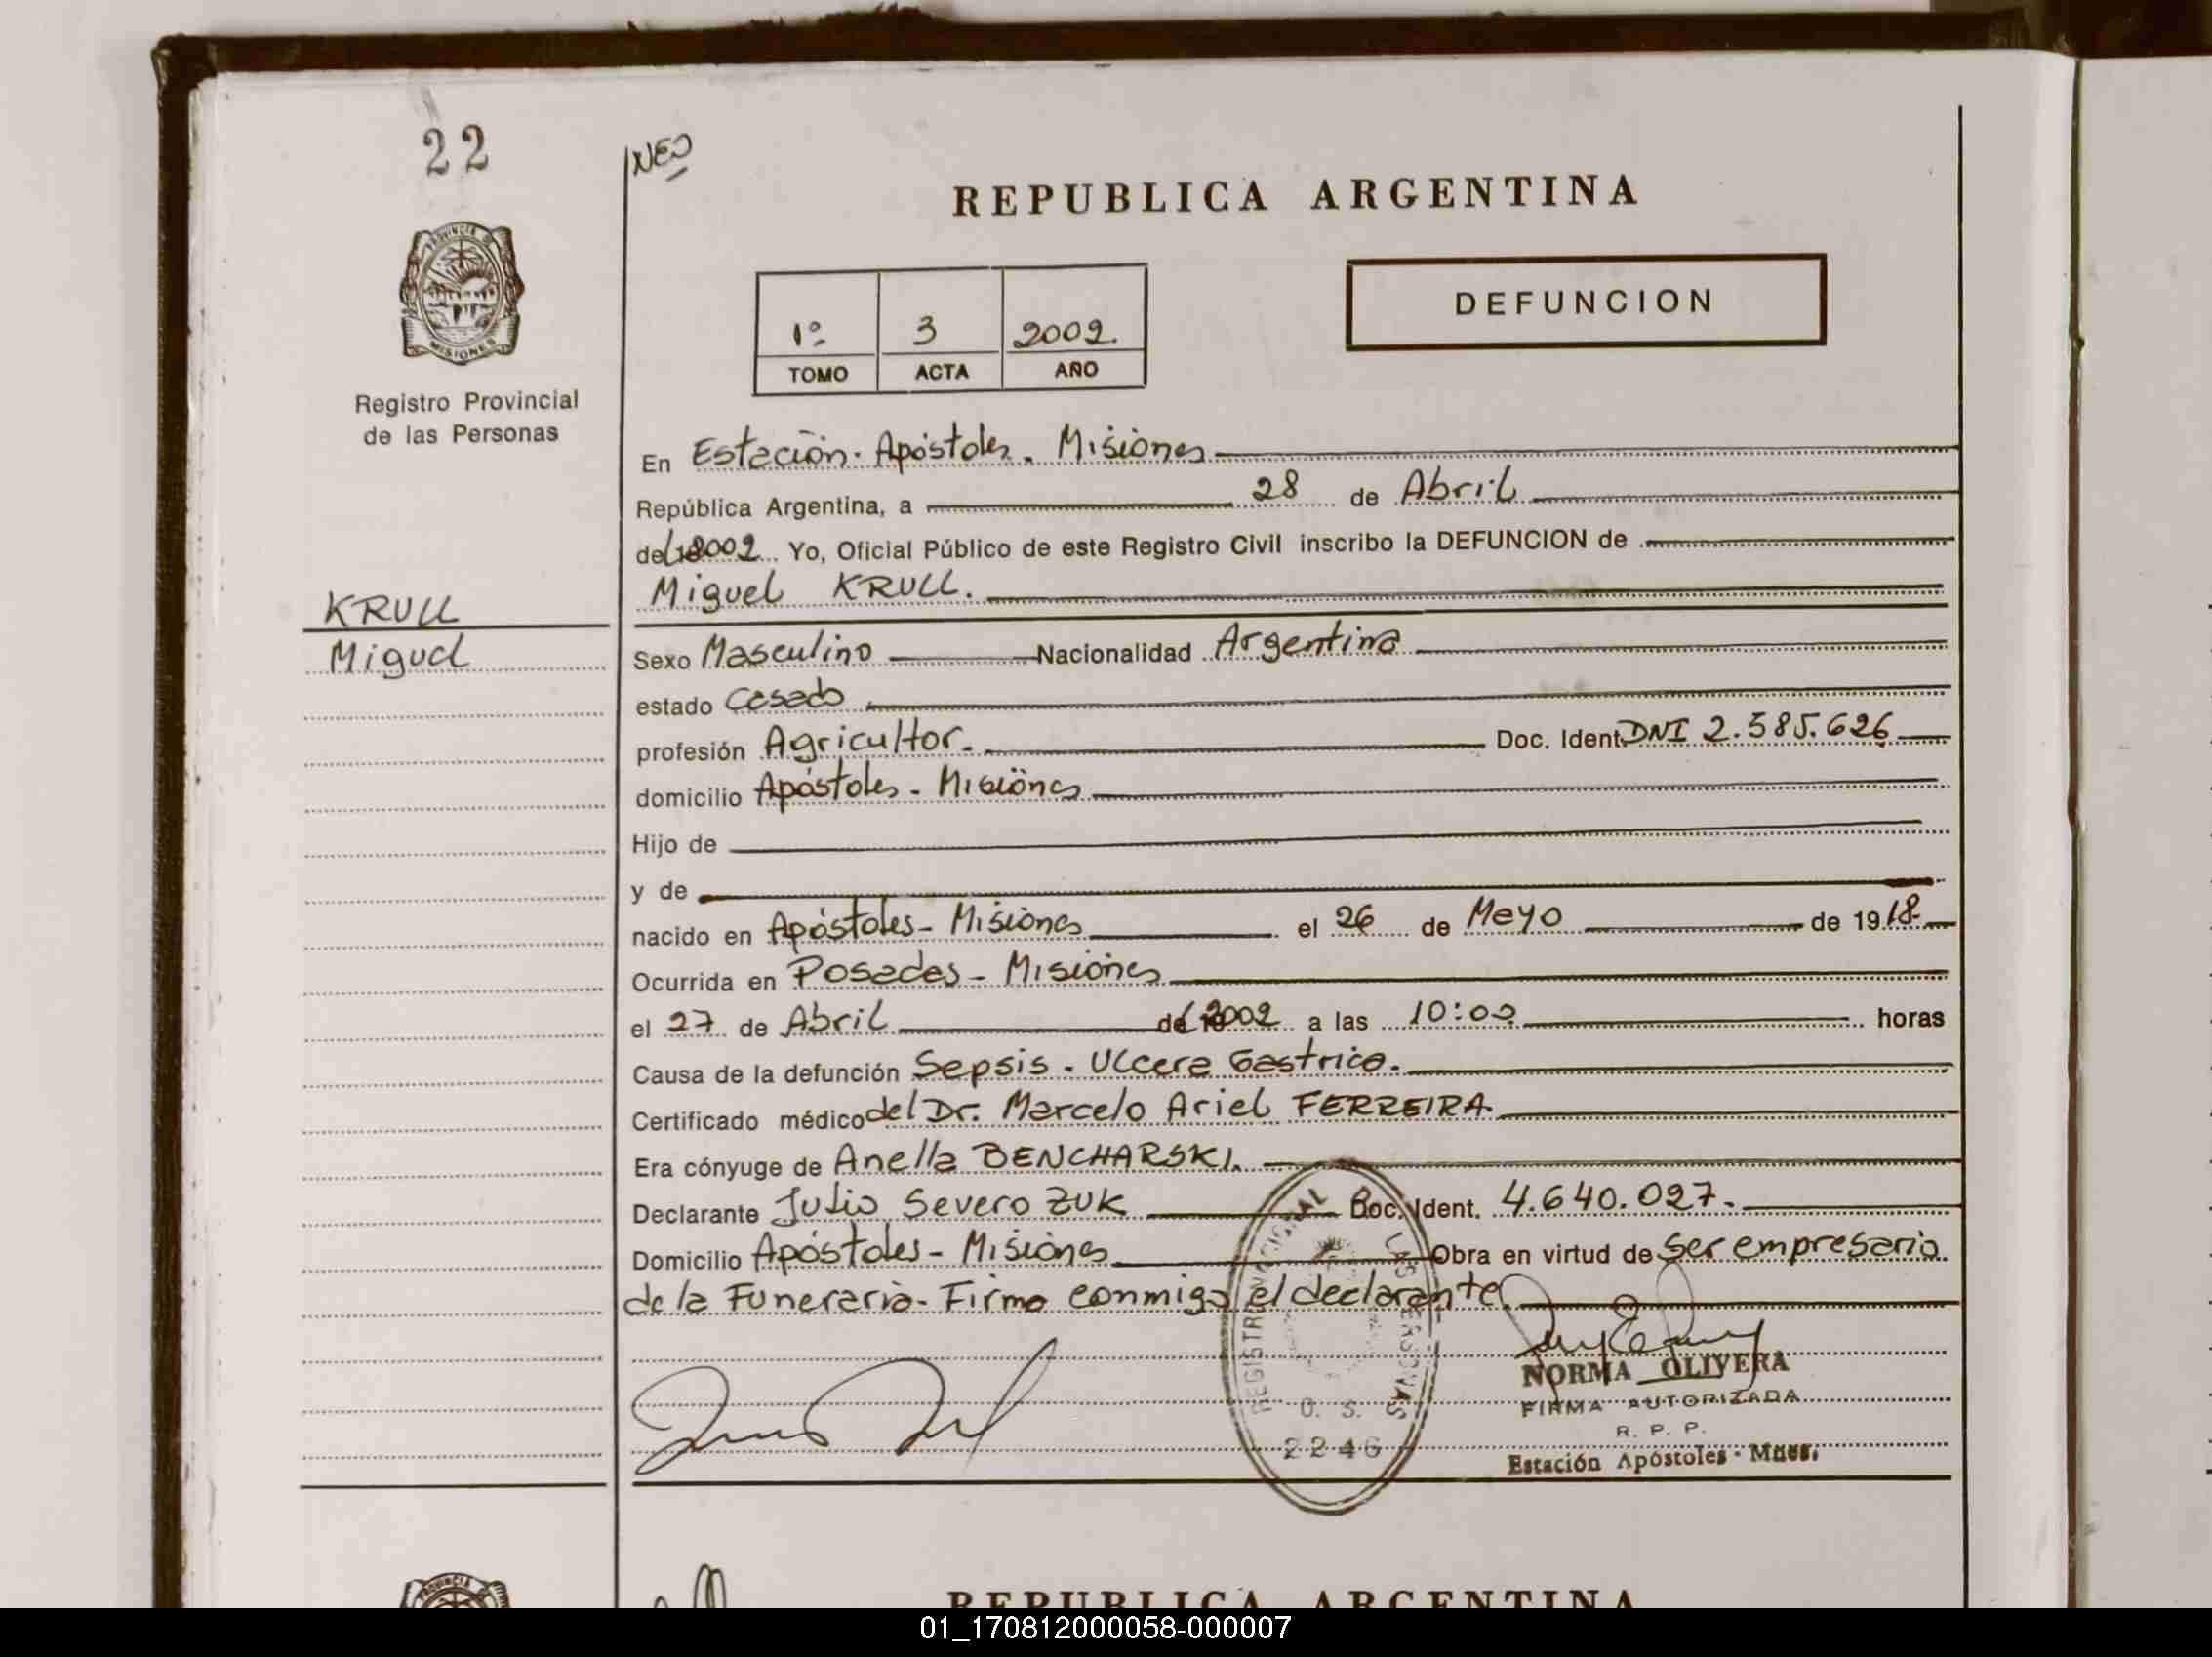 22
NEO
REPUBLICA ARGENTINA
PROVINCIA DE
MISIONES
1º 3 2002.
TOMO ACTA AÑO
DEFUNCION
Registro Provincial
de las Personas
En Estación. Apóstoles. Misiones
República Argentina, a 28 de Abril
del 2002 Yo, Oficial Público de este Registro Civil inscribo la DEFUNCION de
Miguel KRULL.
KRULL
Miguel
Sexo Masculino Nacionalidad Argentina
estado Casado
profesión Agricultor. Doc. Ident. DNI 2.585.626
domicilio Apóstoles - Misiones
Hijo de
y de
nacido en Apóstoles - Misiones el 26 de Mayo de 1918.
Ocurrida en Posadas - Misiones
el 27 de Abril del 2002 a las 10:00 horas
Causa de la defunción Sepsis. Ulcera Gastrica.
Certificado médico del Dr. Marcelo Ariel FERREIRA.
Era cónyuge de Anella BENCHARSKI.
Declarante Julio Severo ZUK Doc. Ident. 4.640.027.
Domicilio Apóstoles - Misiones Obra en virtud de ser empresario
de la Funeraria - Firma conmigo el declarante
NORMA OLIVERA
FIRMA AUTORIZADA
R. P. P.
Estación Apóstoles - Mnes.
O. S.
2246
REPUBLICA ARGENTINA
01_170812000058-000007